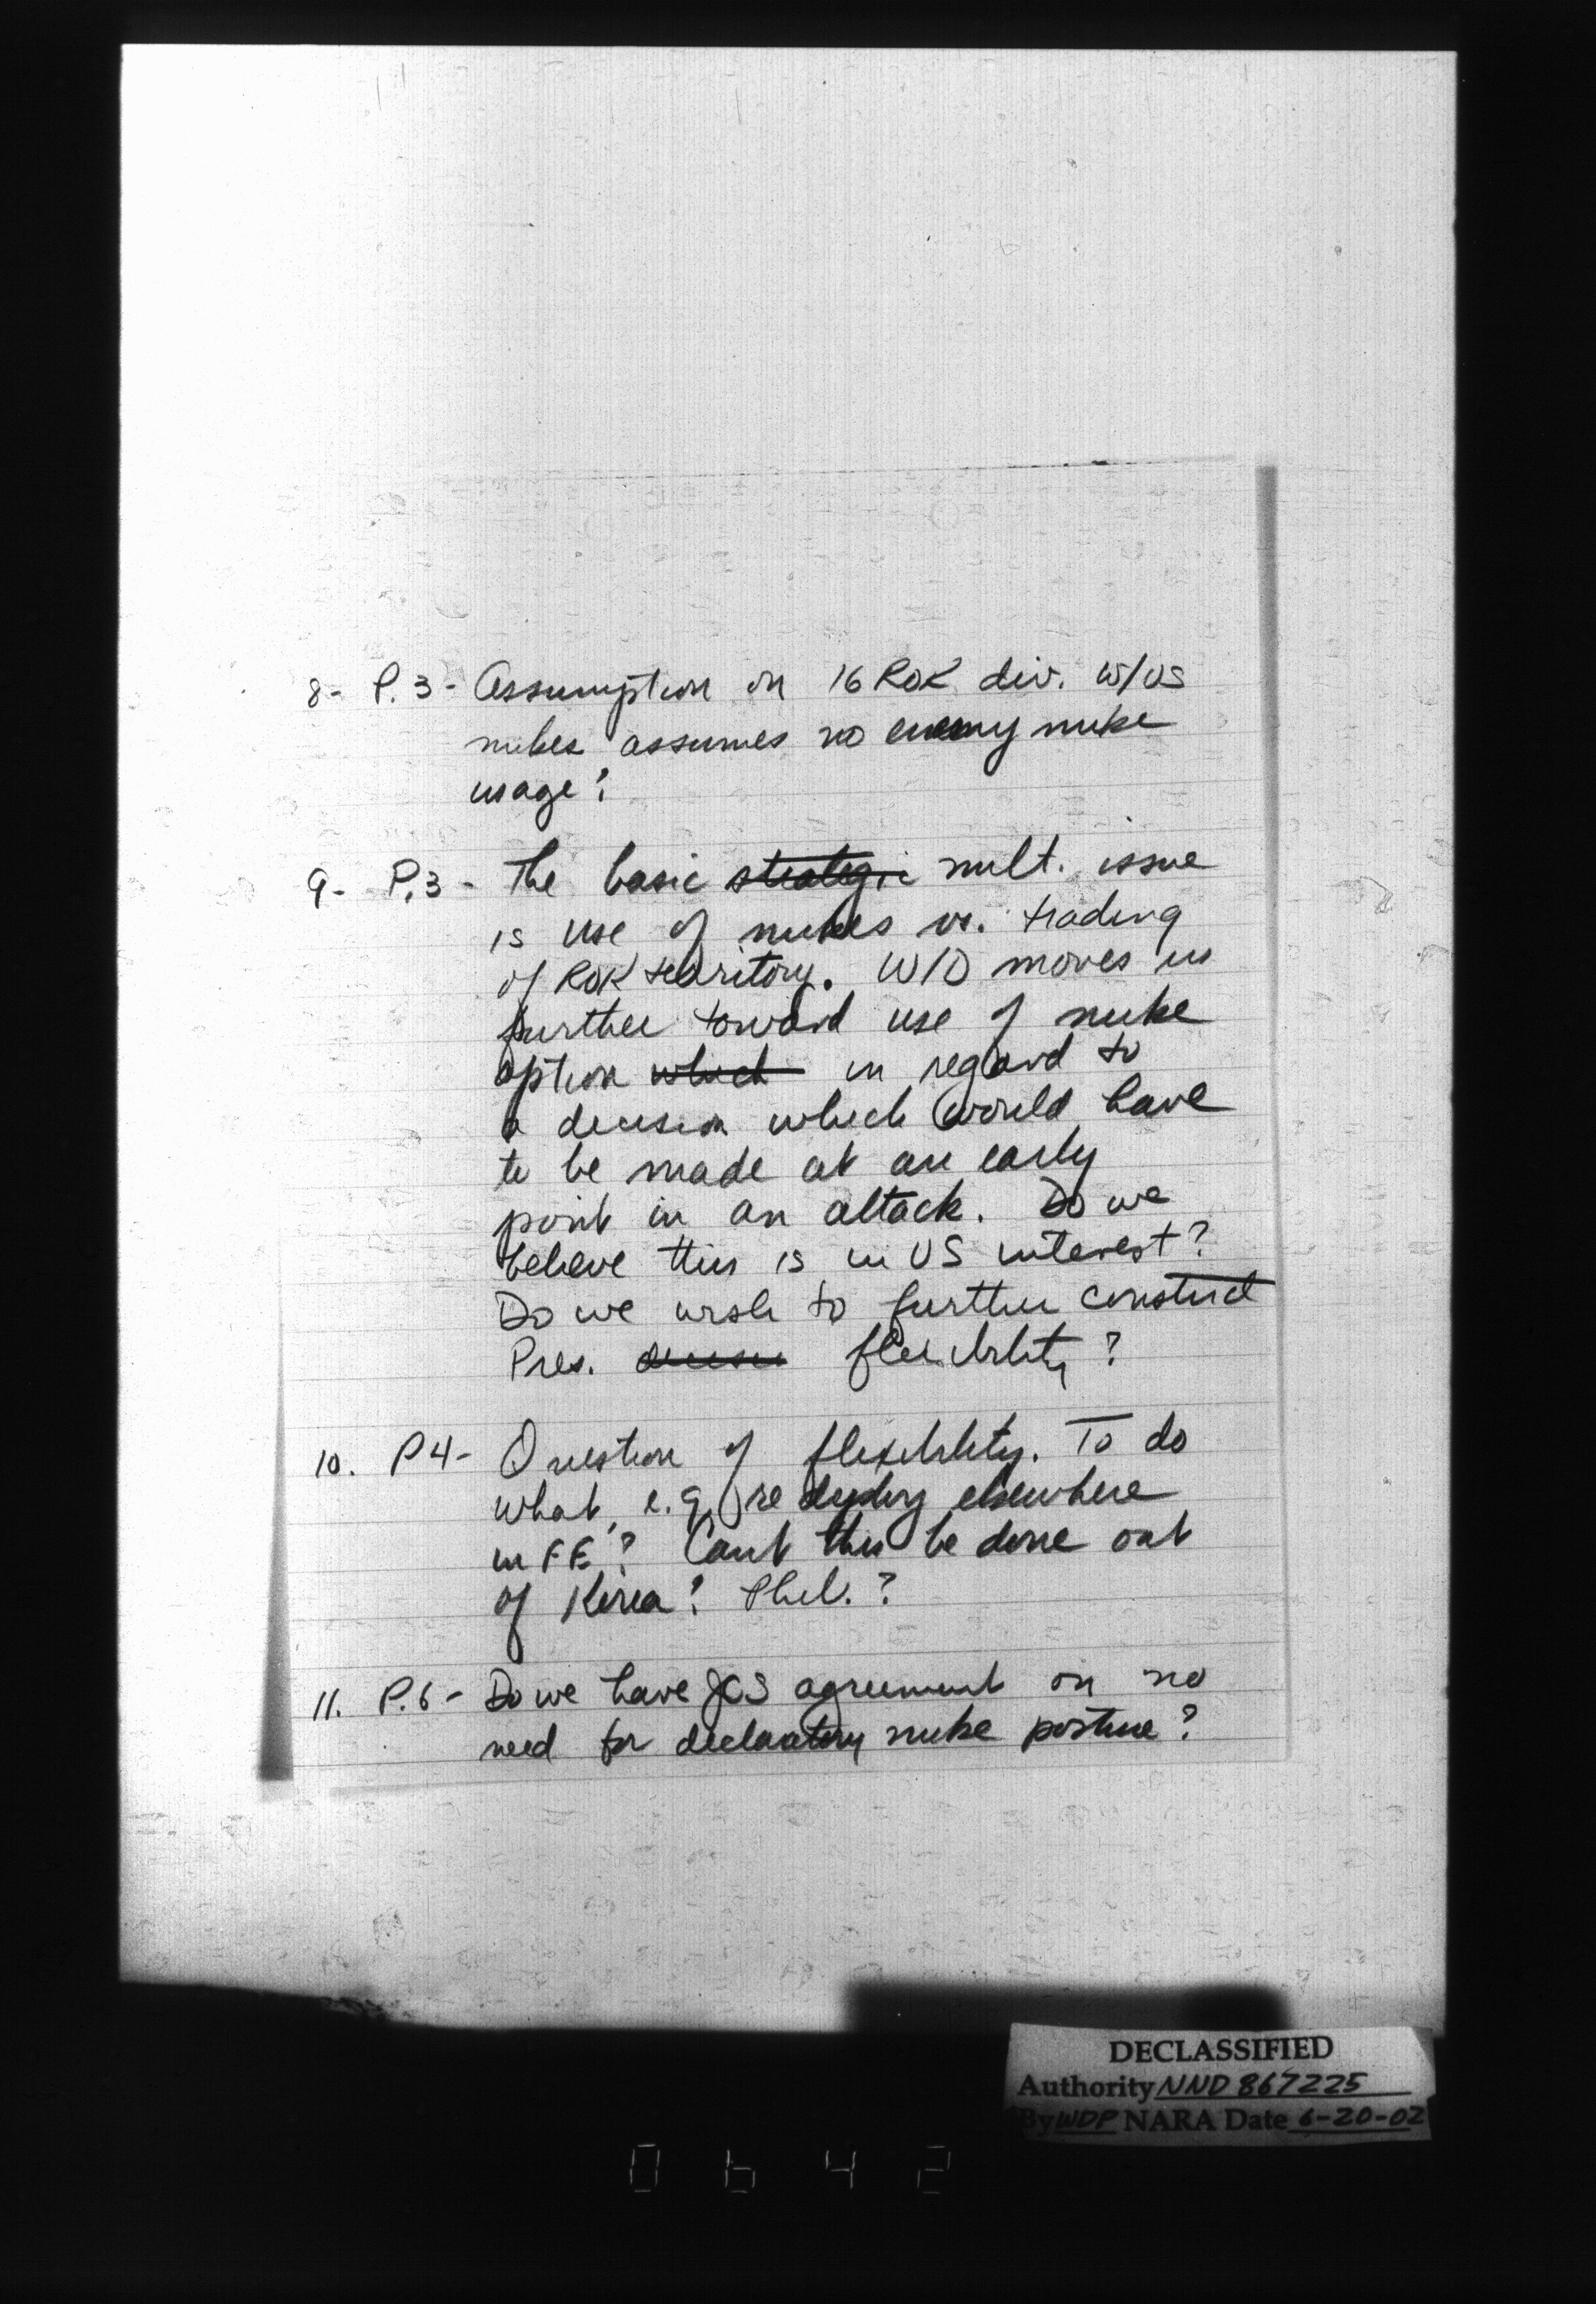 8- P.3- Assumption on 16 ROK div. w/US
nukes assumes no enemy nuke
usage?
9- P.3- The basic strategic milt. issue
is use of nukes vs. trading
of ROK territory. W/D moves us
further toward use of nuke
option which in regard to
a decision which would have
to be made at an early
point in an attack. Do we
believe this is in US interest?
Do we wish to further constrict
Pres. flexibility?
10. P4- Question of flexibility. To do
what, e.g. redeploy elsewhere
in FE? Can't this be done out
of Korea? Phil.?
11. P.6- Do we have JCS agreement on no
need for declaratory nuke posture?
DECLASSIFIED
Authority NND 867225
By WDP NARA Date 6-20-02
0642